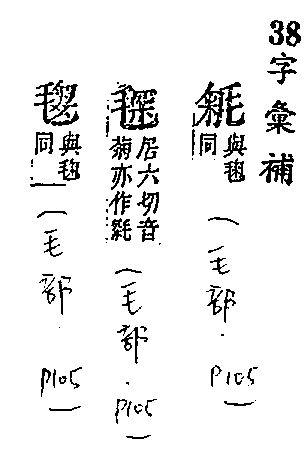 38
字彙補
與毱
同
(毛部.P105)
居六切音
菊亦作
(毛部.P105)
與毱
同
(毛部.P105)